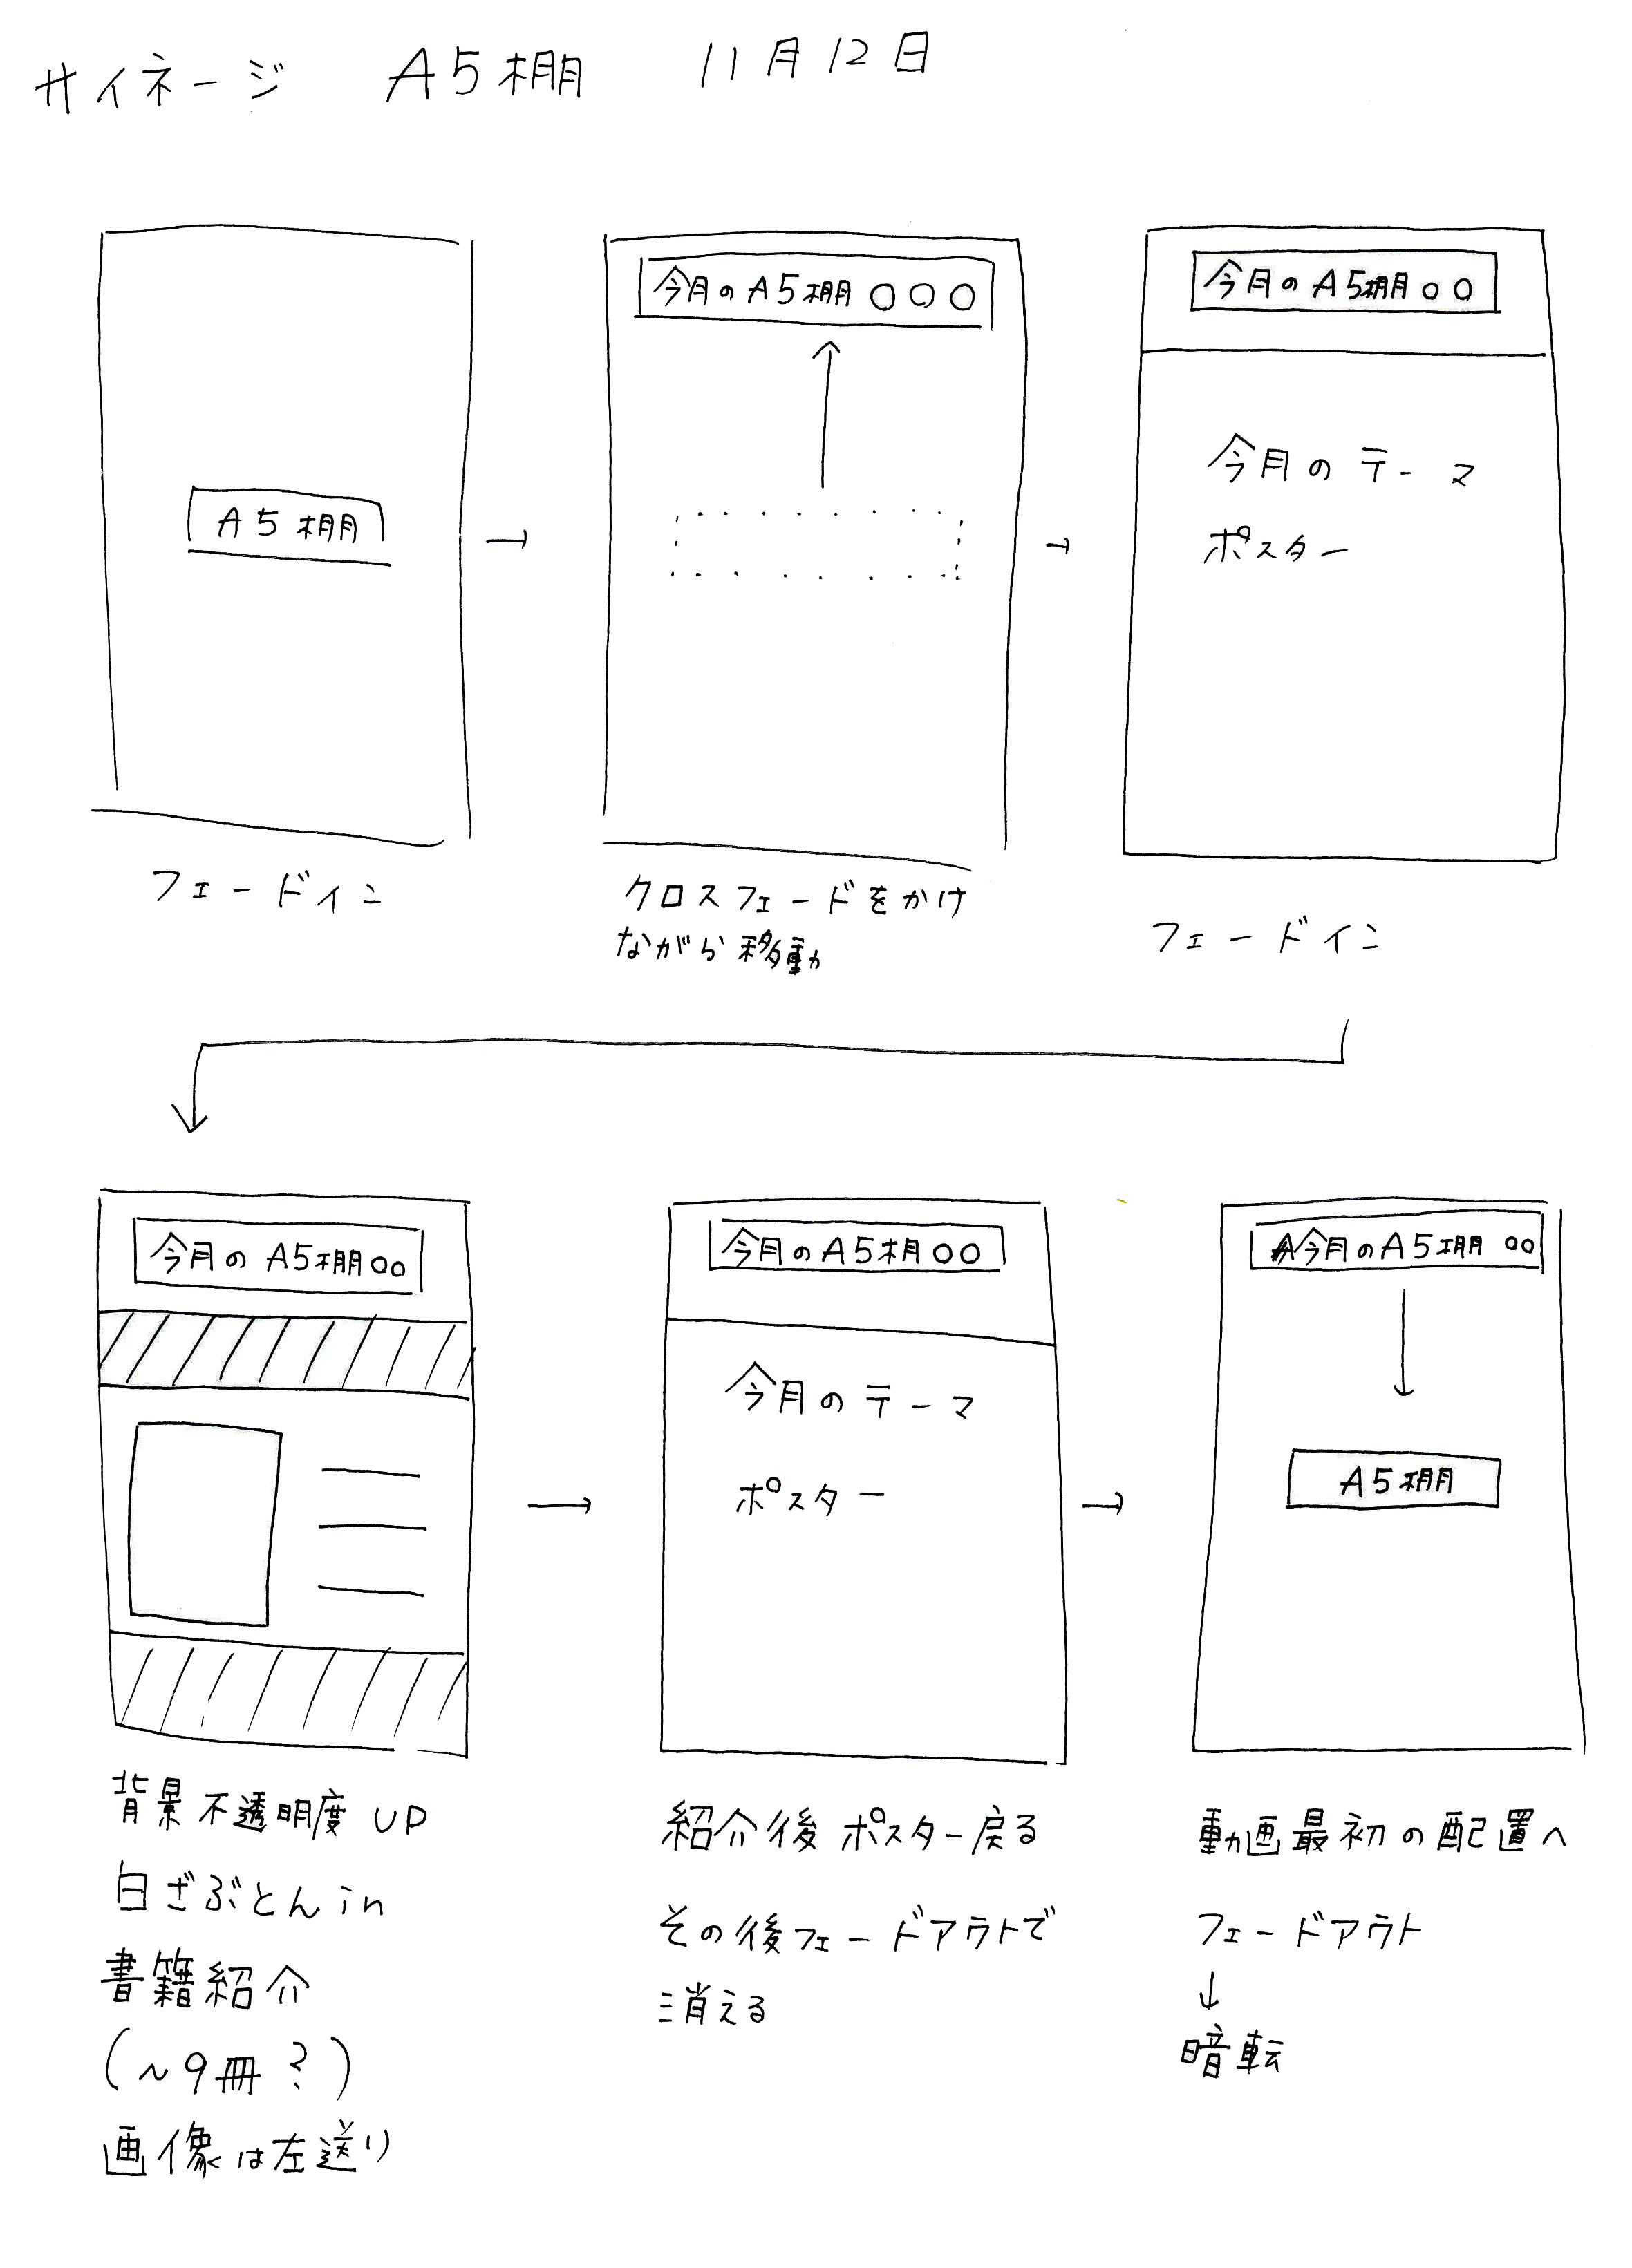 サイネージ A5棚 11月12日
A5棚
フェードイン
今月のA5棚○○○
クロスフェードをかけ
ながら移動
今月のA5棚○○
今月のテーマ
ポスター
フェードイン
今月のA5棚○○
背景不透明度UP
白ざぶとんin
書籍紹介
(~9冊?)
画像は左送り
今月のA5棚○○
今月のテーマ
ポスター
紹介後ポスター戻る
その後フェードアウトで
消える
今月のA5棚○○
A5棚
動画最初の配置へ
フェードアウト
↓
暗転